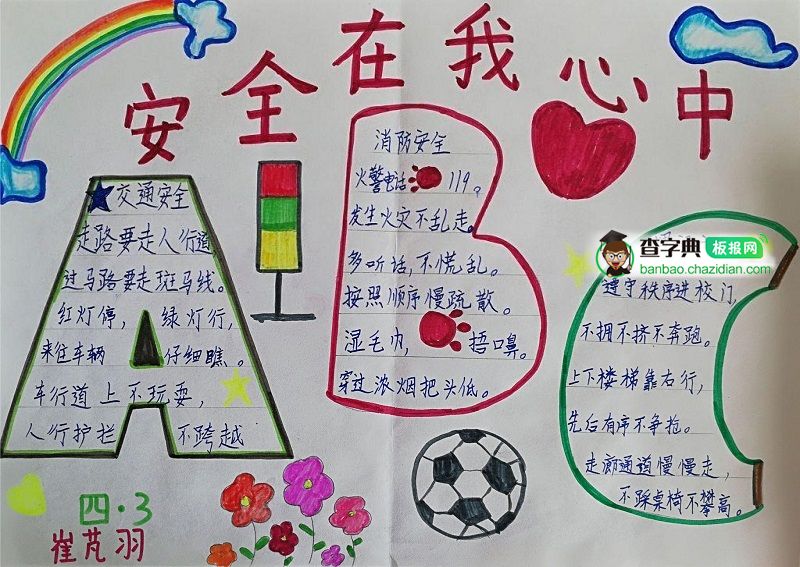 安全在我心中
交通安全
走路要走人行道
过马路要走斑马线。
红灯停, 绿灯行,
来往车辆 仔细瞧。
车行道上不玩耍,
人行护拦 不跨越
消防安全
火警电话 119。
发生火灾不乱走。
多听话,不慌乱。
按照顺序慢疏散。
湿毛巾, 捂嘴鼻。
穿过浓烟把头低。
查字典 板报网
banbao.chazidian.com
遵守秩序进校门,
不拥不挤不奔跑。
上下楼梯靠右行,
先后有序不争抢。
走廊通道慢慢走,
不踩桌椅不攀高。
四·3
崔芃羽